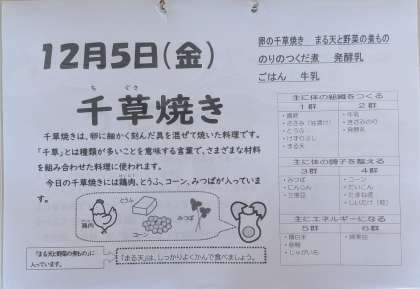 12月5日(金)
ちぐさ
千草焼き
千草焼きは、卵に細かく刻んだ具を混ぜて焼いた料理です。
「千草」とは種類が多いことを意味する言葉で、さまざまな材料
を組み合わせた料理に使われます。
今日の千草焼きには鶏肉、とうふ、コーン、みつばが入っていま
す。
とうふ
みつば
鶏肉
コーン
「まる天と野菜の煮もの」に
入っています。
「まる天」は、しっかりよくかんで食べましょう。
卵の千草焼き まる天と野菜の煮もの
のりのつくだ煮 発酵乳
ごはん 牛乳
主に体の組織をつくる
1群 2群
・鶏卵
・牛乳
・ささみ(水煮)
・きざみのり
・とうふ
・発酵乳
・けずりぶし
・まる天
主に体の調子を整える
3群 4群
・みつば
・コーン
・にんじん
・だいこん
・三度豆
・たまねぎ
・しいたけ(乾)
主にエネルギーになる
5群 6群
・精白米
・綿実油
・砂糖
・じゃがいも